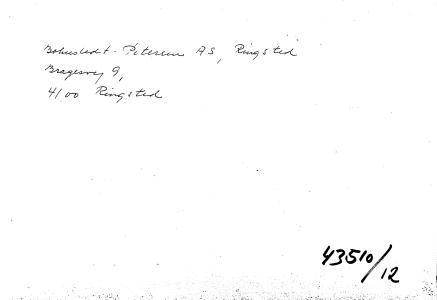 Bohnstedt-Petersen AS, Ringsted
Bragesvej 9,
4100 Ringsted
43510/12